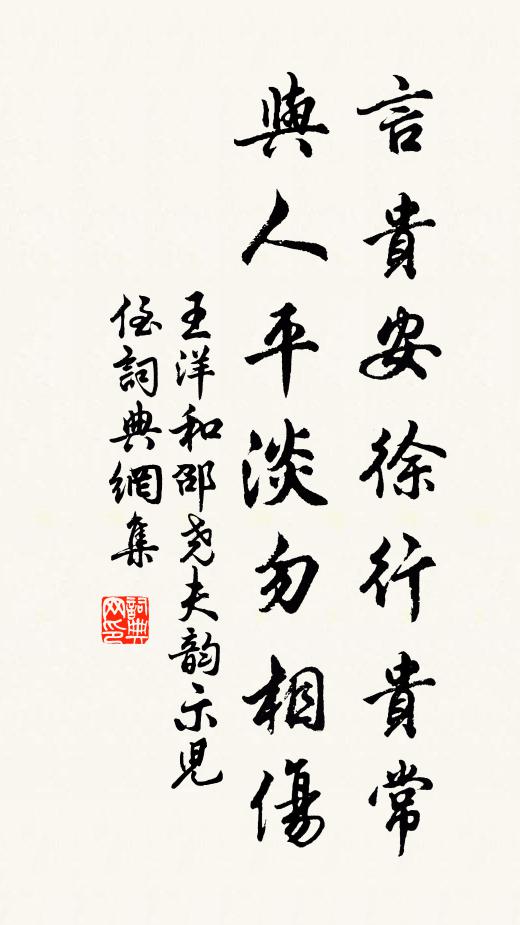 言貴安徐行貴常
與人平淡勿相傷
王洋和邵尧夫韵示児
侄詞典網集
詞典
网印